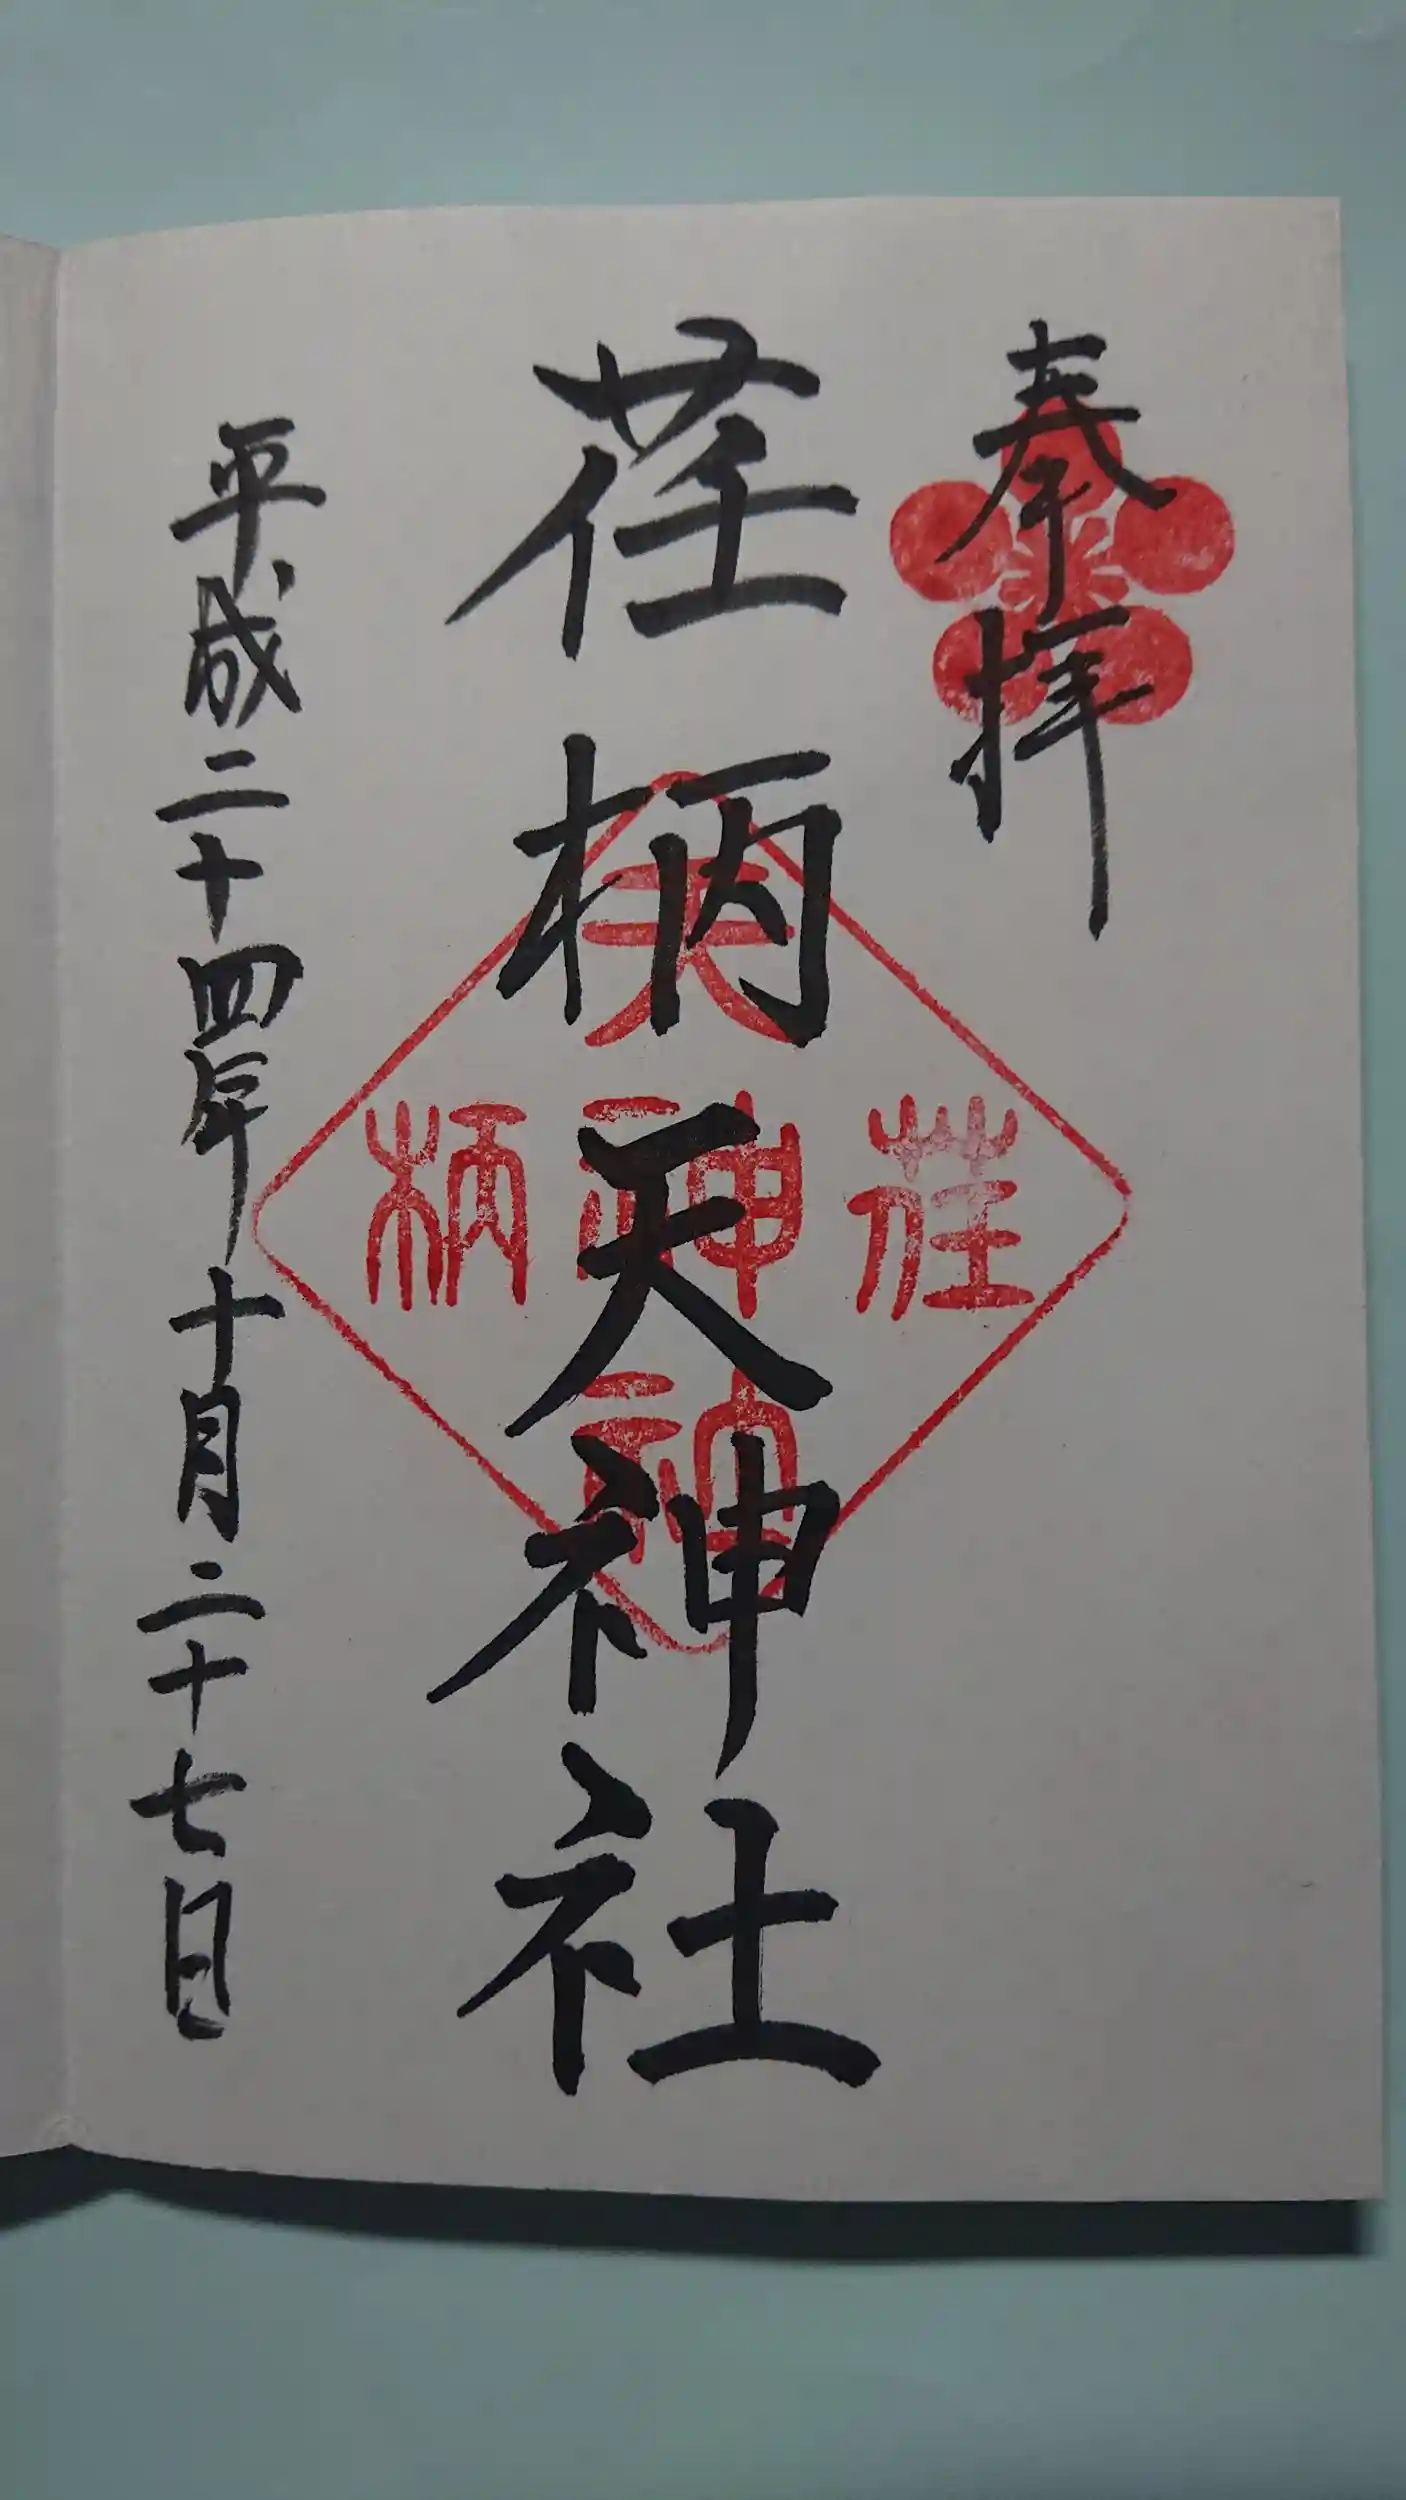 奉拝
荏柄天神社
平成二十四年十月二十七日
天
荏神柄
社